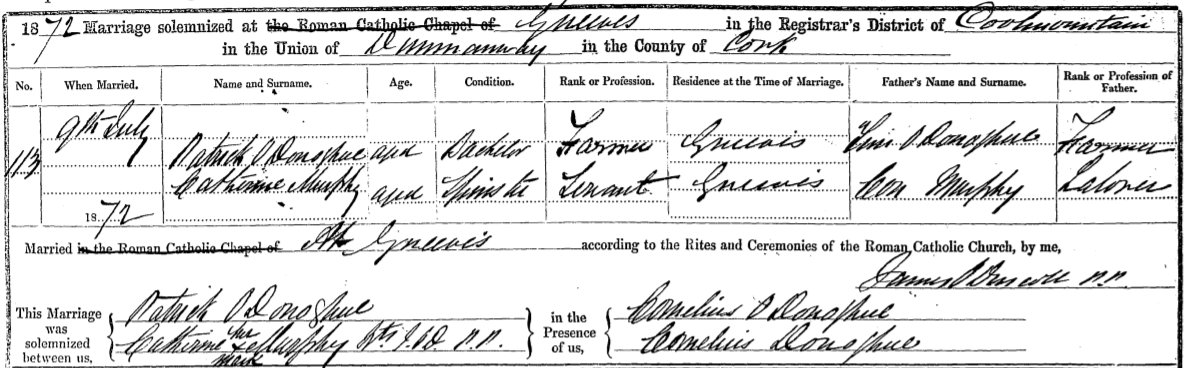 1872 Marriage solemnized at the Roman Catholic Chapel of Gneeves in the Registrar's District of Coolmountain
in the Union of Dunmanway in the County of Cork
No. When Married. Name and Surname. Age. Condition. Rank or Profession. Residence at the Time of Marriage. Father's Name and Surname. Rank or Profession of Father.
113 9th July
Patrick O'Donoghue aged Bachelor Farmer Gneevis O'Donoghue Farmer
Catherine Murphy aged Spinster Servant Gneevis Con Murphy Laborer
1872
Married in the Roman Catholic Chapel of At Gneevis according to the Rites and Ceremonies of the Roman Catholic Church, by me,
James O'Driscoll P.P.
This Marriage was solemnized between us,
Patrick O'Donoghue
Catherine her x mark Murphy P.P.
in the Presence of us,
Cornelius O'Donoghue
Cornelius Donoghue